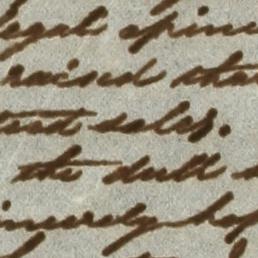 legal opini
raised tha
tust sales.
the dull
incerely hop